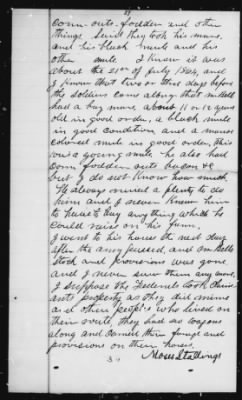 corn oats, fodder and other
things. Said they took his mare,
and his black mule and his
other mule. I know it was
about the 21st of July 1864, and
I know that two or three days before
the soldiers came along that Mr Bell
had a bay mare, about 11 or 12 years
old in good order, a black mule
in good condition, and a mouse
colored mule in good order, this
was a young mule. he also had
corn fodder oats bacon &c
but I do not know how much.
He always raised a plenty to do
him and I never knew him
to have to buy any thing which he
could raise on his farm.
I went to his house the next day
after the army passed, and Mr Bells
Stock and provisions was gone
and I never saw them any more.
I suppose the Federals took Claim-
ants property as they did mine
and other peoples who lived on
their route, they had no wagons
along and carried their forage and
provisions on their horses.
Moses Stallings